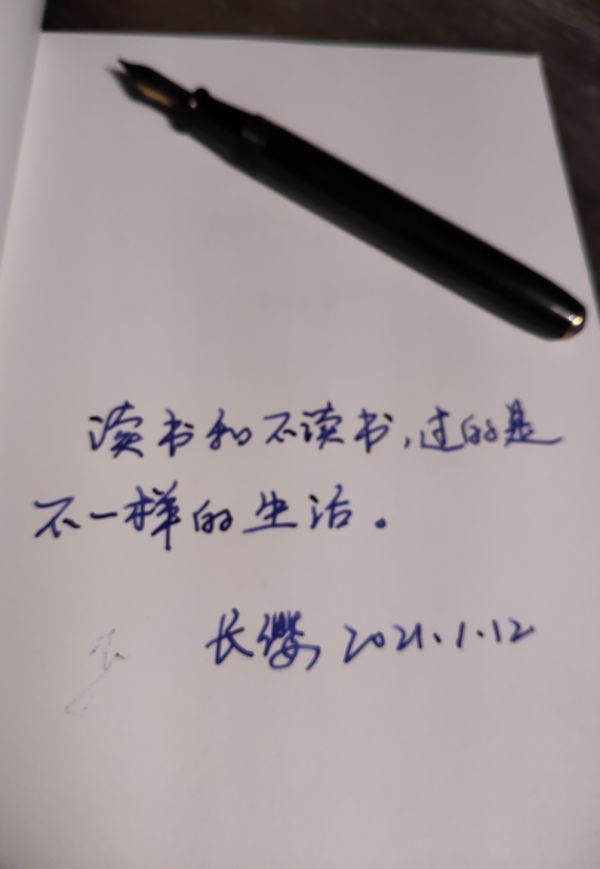 读书和不读书，过的是
不一样的生活。
长缨 2021.1.12